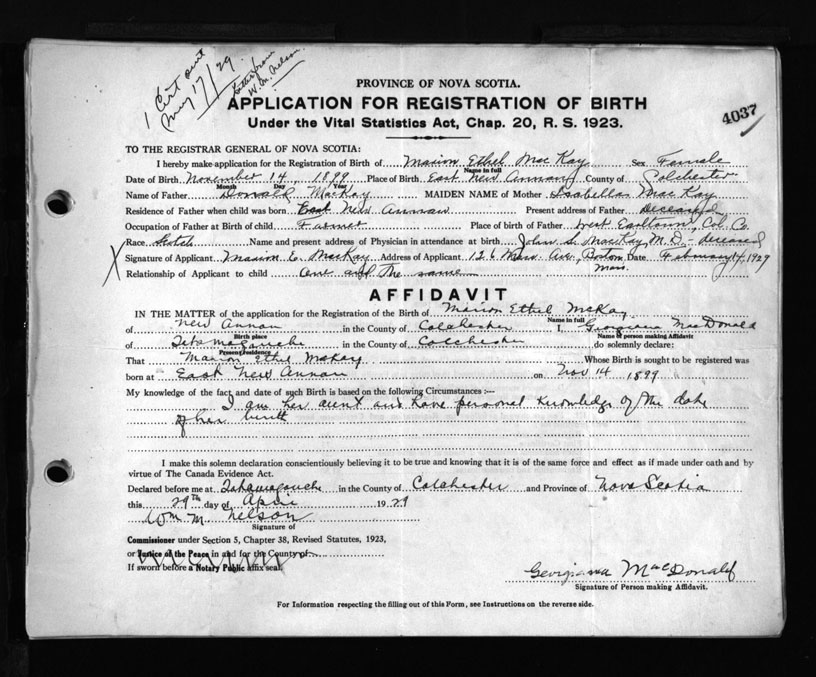 1 Cert out
May 17/29
Letter from
W. M. Nelson.
PROVINCE OF NOVA SCOTIA.
APPLICATION FOR REGISTRATION OF BIRTH
4037
Under the Vital Statistics Act, Chap. 20, R. S. 1923.
TO THE REGISTRAR GENERAL OF NOVA SCOTIA:
I hereby make application for the Registration of Birth of Marion Ethel MacKay Sex Female
Name in full
Date of Birth November 14, 1899 Place of Birth East New Annan County of Colchester
Month Day Year
Name of Father Donald MacKay MAIDEN NAME of Mother Isabella MacKay
Residence of Father when child was born East New Annan Present address of Father Deceased
Occupation of Father at Birth of child Farmer Place of birth of Father West Earltown, Col. Co.
Race Scotch Name and present address of Physician in attendance at birth John S. MacKay, M.D. - deceased
X Signature of Applicant Marion E. MacKay Address of Applicant 126 Mass. Ave, Boston Date February 14, 1929
Mass.
Relationship of Applicant to child One and the same
AFFIDAVIT
IN THE MATTER of the application for the Registration of the Birth of Marion Ethel McKay
Name in full
of New Annan in the County of Colchester I, Georgianna MacDonald
Birth place Name of person making Affidavit
of Tatamagouche in the County of Colchester do solemnly declare:
Present residence
That Marion Ethel McKay Whose Birth is sought to be registered was
born at East New Annan on Nov 14 1899
My knowledge of the fact and date of such Birth is based on the following Circumstances :—
I am her aunt and have personal knowledge of the date
of her birth
I make this solemn declaration conscientiously believing it to be true and knowing that it is of the same force and effect as if made under oath and by
virtue of The Canada Evidence Act.
Declared before me at Tatamagouche in the County of Colchester and Province of Nova Scotia
this 29th day of April 1929
Wm M Nelson
Signature of
Commissioner under Section 5, Chapter 38, Revised Statutes, 1923,
or Justice of the Peace in and for the County of
If sworn before a Notary Public affix seal
Georgianna MacDonald
Signature of Person making Affidavit.
For Information respecting the filling out of this Form, see Instructions on the reverse side.